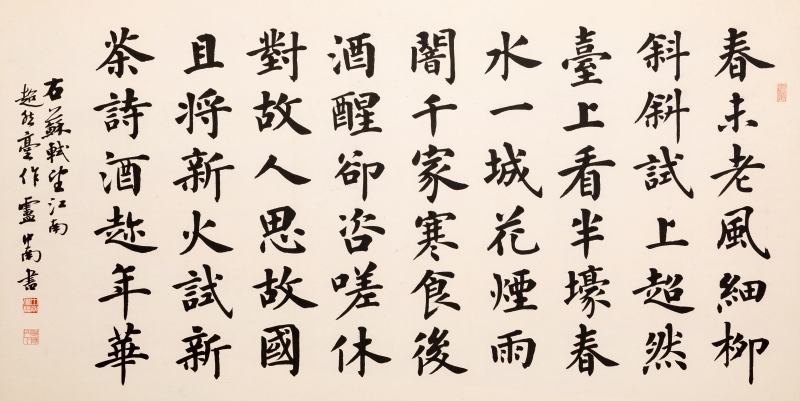 春未老風細柳
斜斜試上超然
臺上看半壕春
水一城花煙雨
闇千家寒食後
酒醒卻咨嗟休
對故人思故國
且将新火試新
茶詩酒趂年華
右蘇軾望江南
超然臺作盧中南書